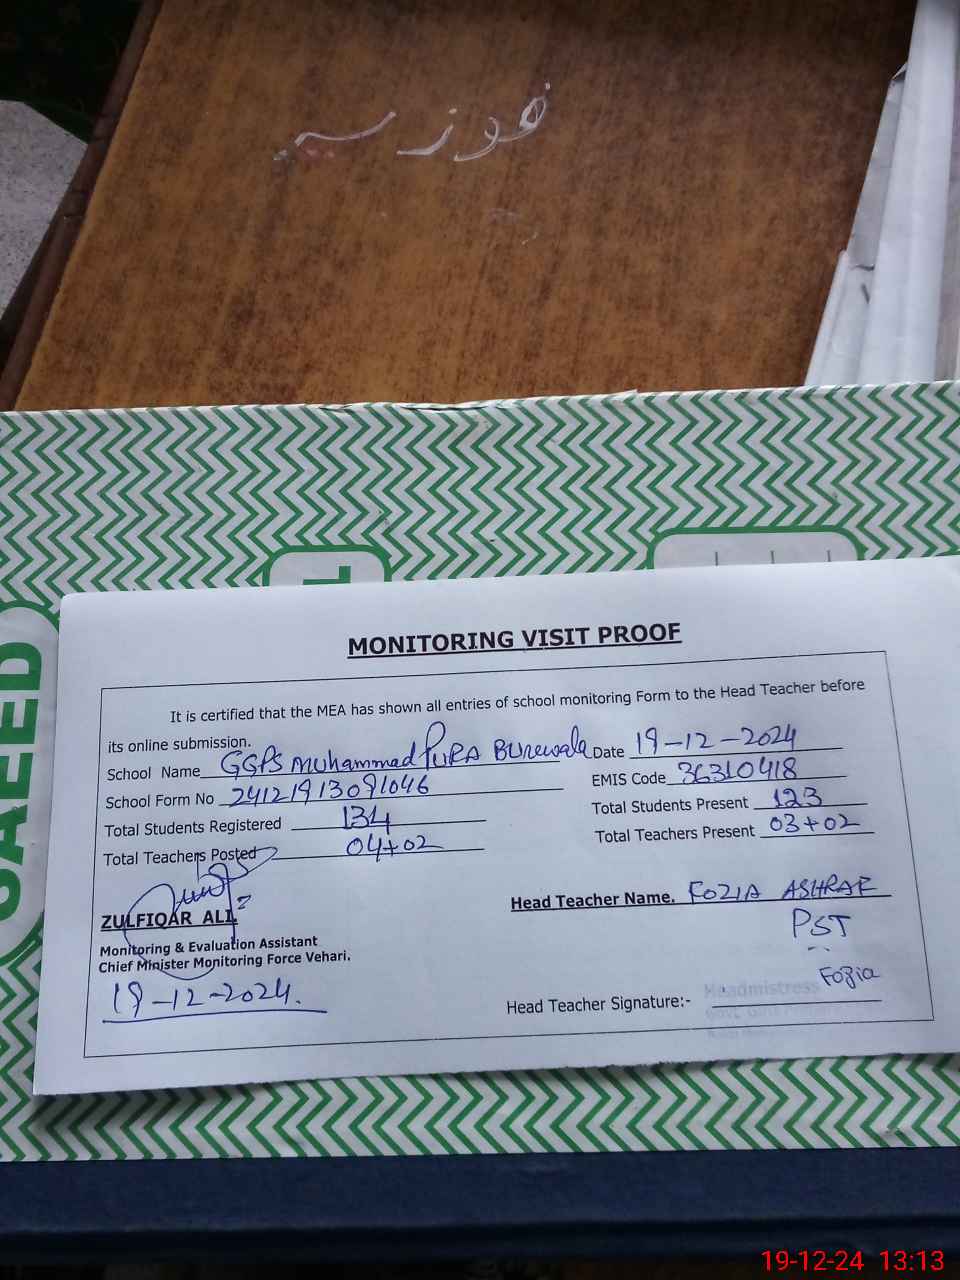 فوزیہ
SAEED
MONITORING VISIT PROOF
It is certified that the MEA has shown all entries of school monitoring Form to the Head Teacher before
its online submission.
School Name GGPS Muhammad PURA Burewala Date 19-12-2024
School Form No 24121913091046 EMIS Code 36310418
Total Students Registered 134 Total Students Present 123
Total Teachers Posted 04+02 Total Teachers Present 03+02
ZULFIQAR ALI
Monitoring & Evaluation Assistant
Chief Minister Monitoring Force Vehari.
19-12-2024.
Head Teacher Name. FOZIA ASHRAF
PST
Fozia
Head Teacher Signature:- Headmistress
19-12-24 13:13